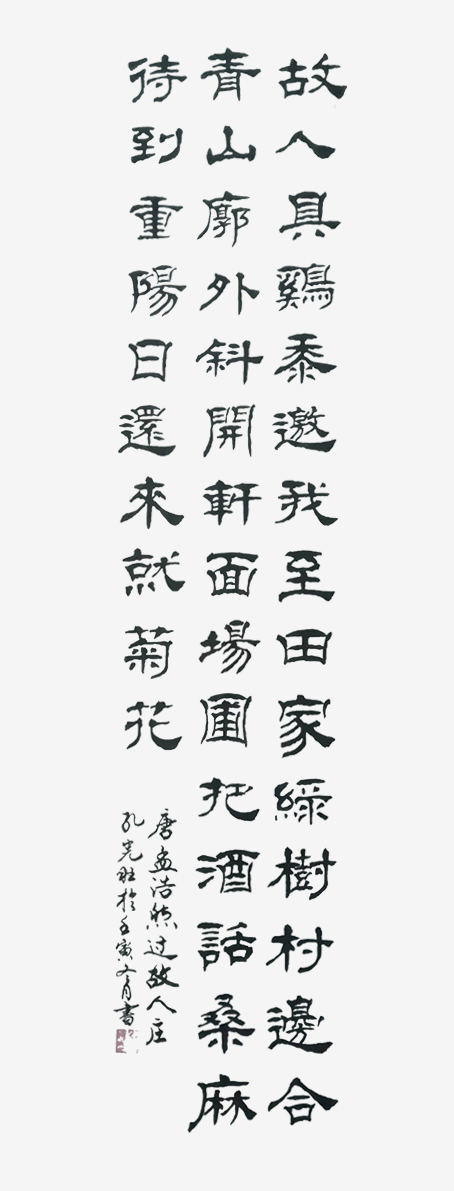 故人具鷄黍邀我至田家綠樹村邊合
青山廓外斜開軒面場圃把酒話桑麻
待到重陽日還來就菊花
唐孟浩然过故人庄
孔於壬寅月書